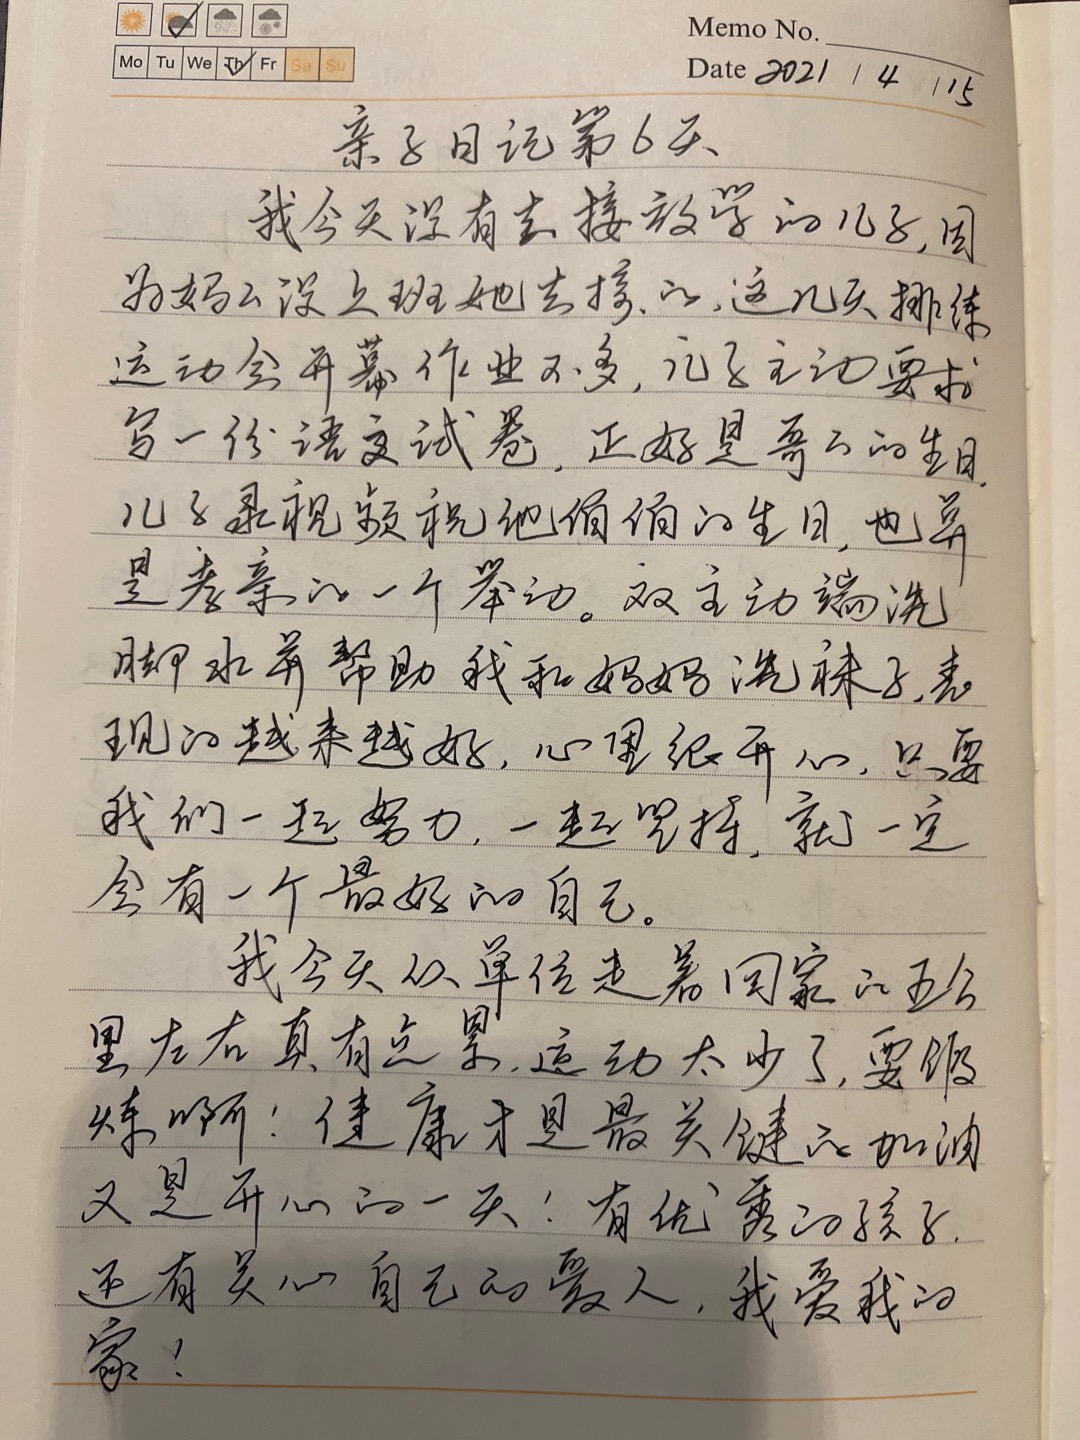 Memo No.
Mo Tu We Th Fr Sa Su
Date 2021 / 4 / 15
亲子日记第6天
我今天没有去接放学的儿子,因
为妈妈没上班她去接的,这几天排练
运动会开幕作业不多,儿子主动要求
写一份语文试卷,正好是哥哥的生日,
儿子录视频祝他俩俩的生日,也算
是孝亲的一个举动。双主动端洗
脚水并帮助我和妈妈洗袜子,表
现的越来越好,心里很开心,只要
我们一起努力,一起坚持,就一定
会有一个最好的自己。
我今天从单位走着回家的五公
里左右真有点累,运动太少了,要锻
炼啊!健康才是最关键的加油
又是开心的一天!有优秀的孩子,
还有关心自己的爱人,我爱我的
家!